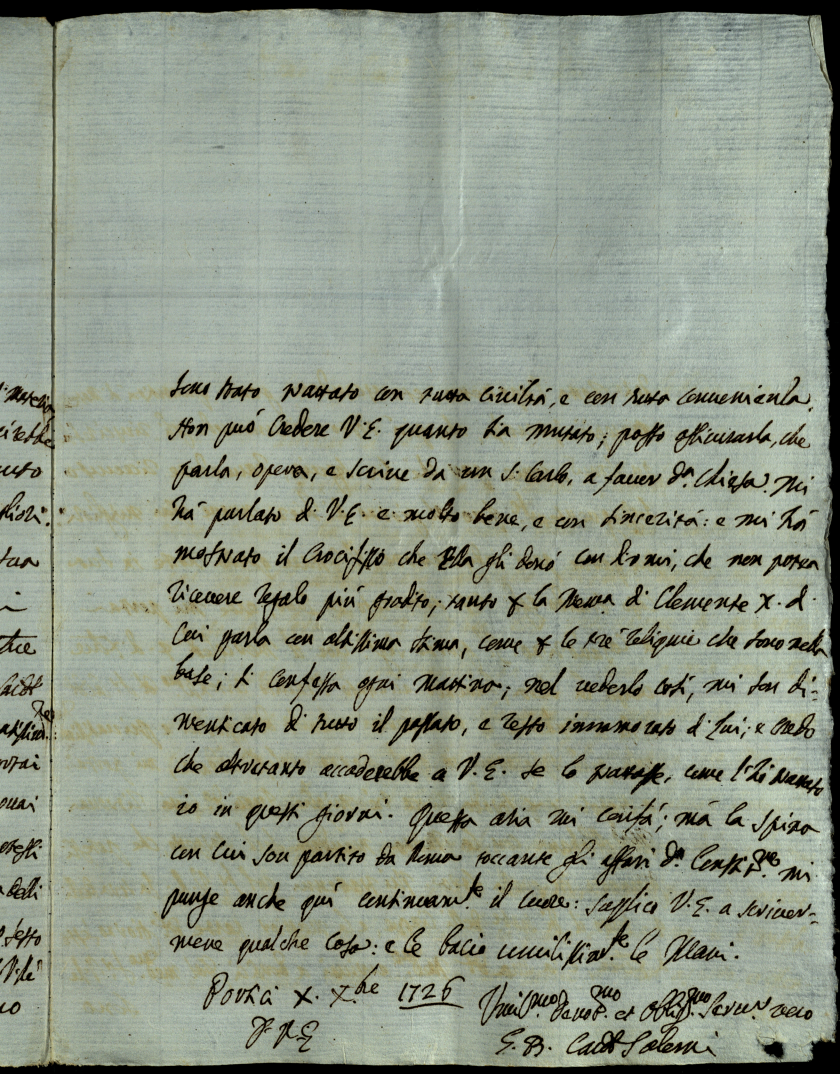 sono stato trattato con tutta civiltà, e con tutta convenienza.
Non può credere V.E. quanto sia mutato; posso assicurarla, che
parla, opera, e scrive da un S. Carlo, a favor d.ª Chiesa. Mi
hà parlato di V.E. e molto bene, e con sincerità: e mi hà
mostrato il Crocifisso che Ella gli donò con dirmi, che non potea
ricevere regalo più gradito; tanto p la mem.a di Clemente X. di
cui parla con altissima stima, come p le trè reliquie che sono nella
base; si confessa ogni mattina; nel vederlo così, mi son di=
menticato di tutto il passato, e resto innamorato di lui; e credo
che altretanto accaderebbe a V.E. se lo trattasse, come l'hò trattato
io in questi giorni. Quest'aria mi conferà; mà la spina
con cui son partito da Roma toccante gli affari d.ª Constit.ne mi
punge anche quì continuam.te il cuore: supplico V.E. a scriver=
mene qualche cosa: e le bacio umilissim.te le Mani.
Portici X. X.bre 1726
Umil.mo Devot.mo et Obblig.mo Serv.r vero
G. B. Card. Salerni
materia
tutto
migliori.
ouai
sesto